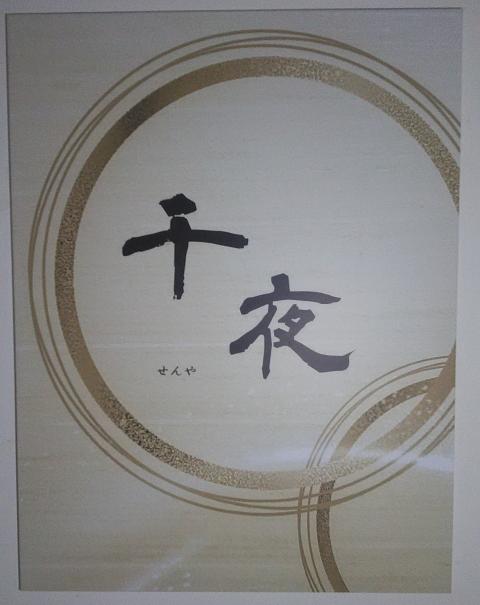 千夜
せんや